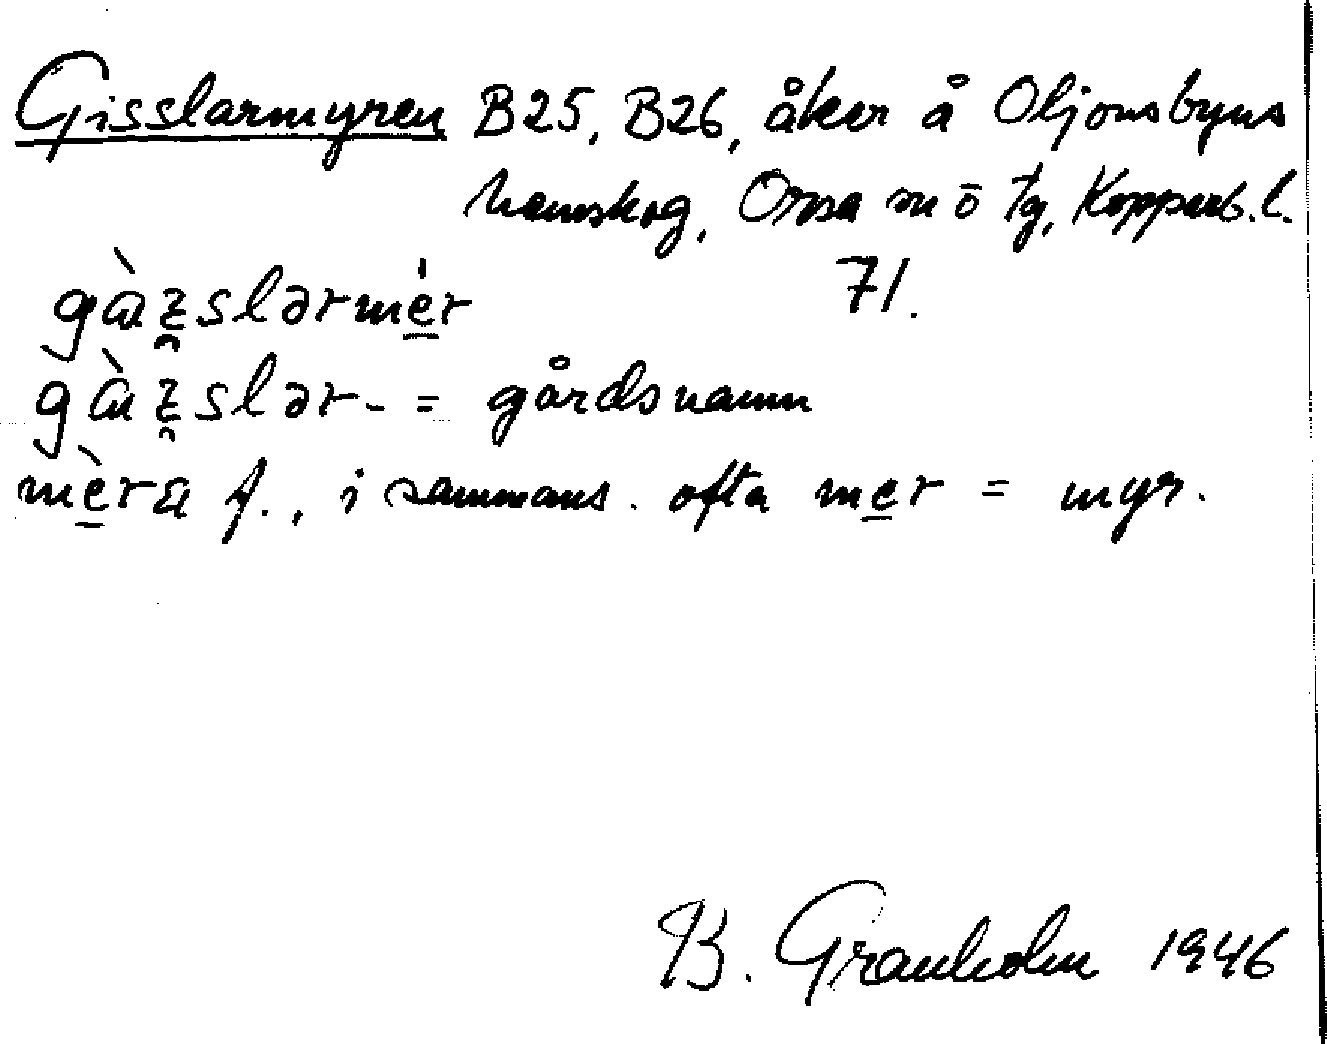 Gisslarmyren B25, B26, åker å Oljonsbyns
hemskog, Orsa sn ö tg, Kopparb. l.
71.
gàɪslərmér
gàɪslər- = gårdsnamn
mèra f., i sammans. ofta mer = myr.
B. Granholm 1946